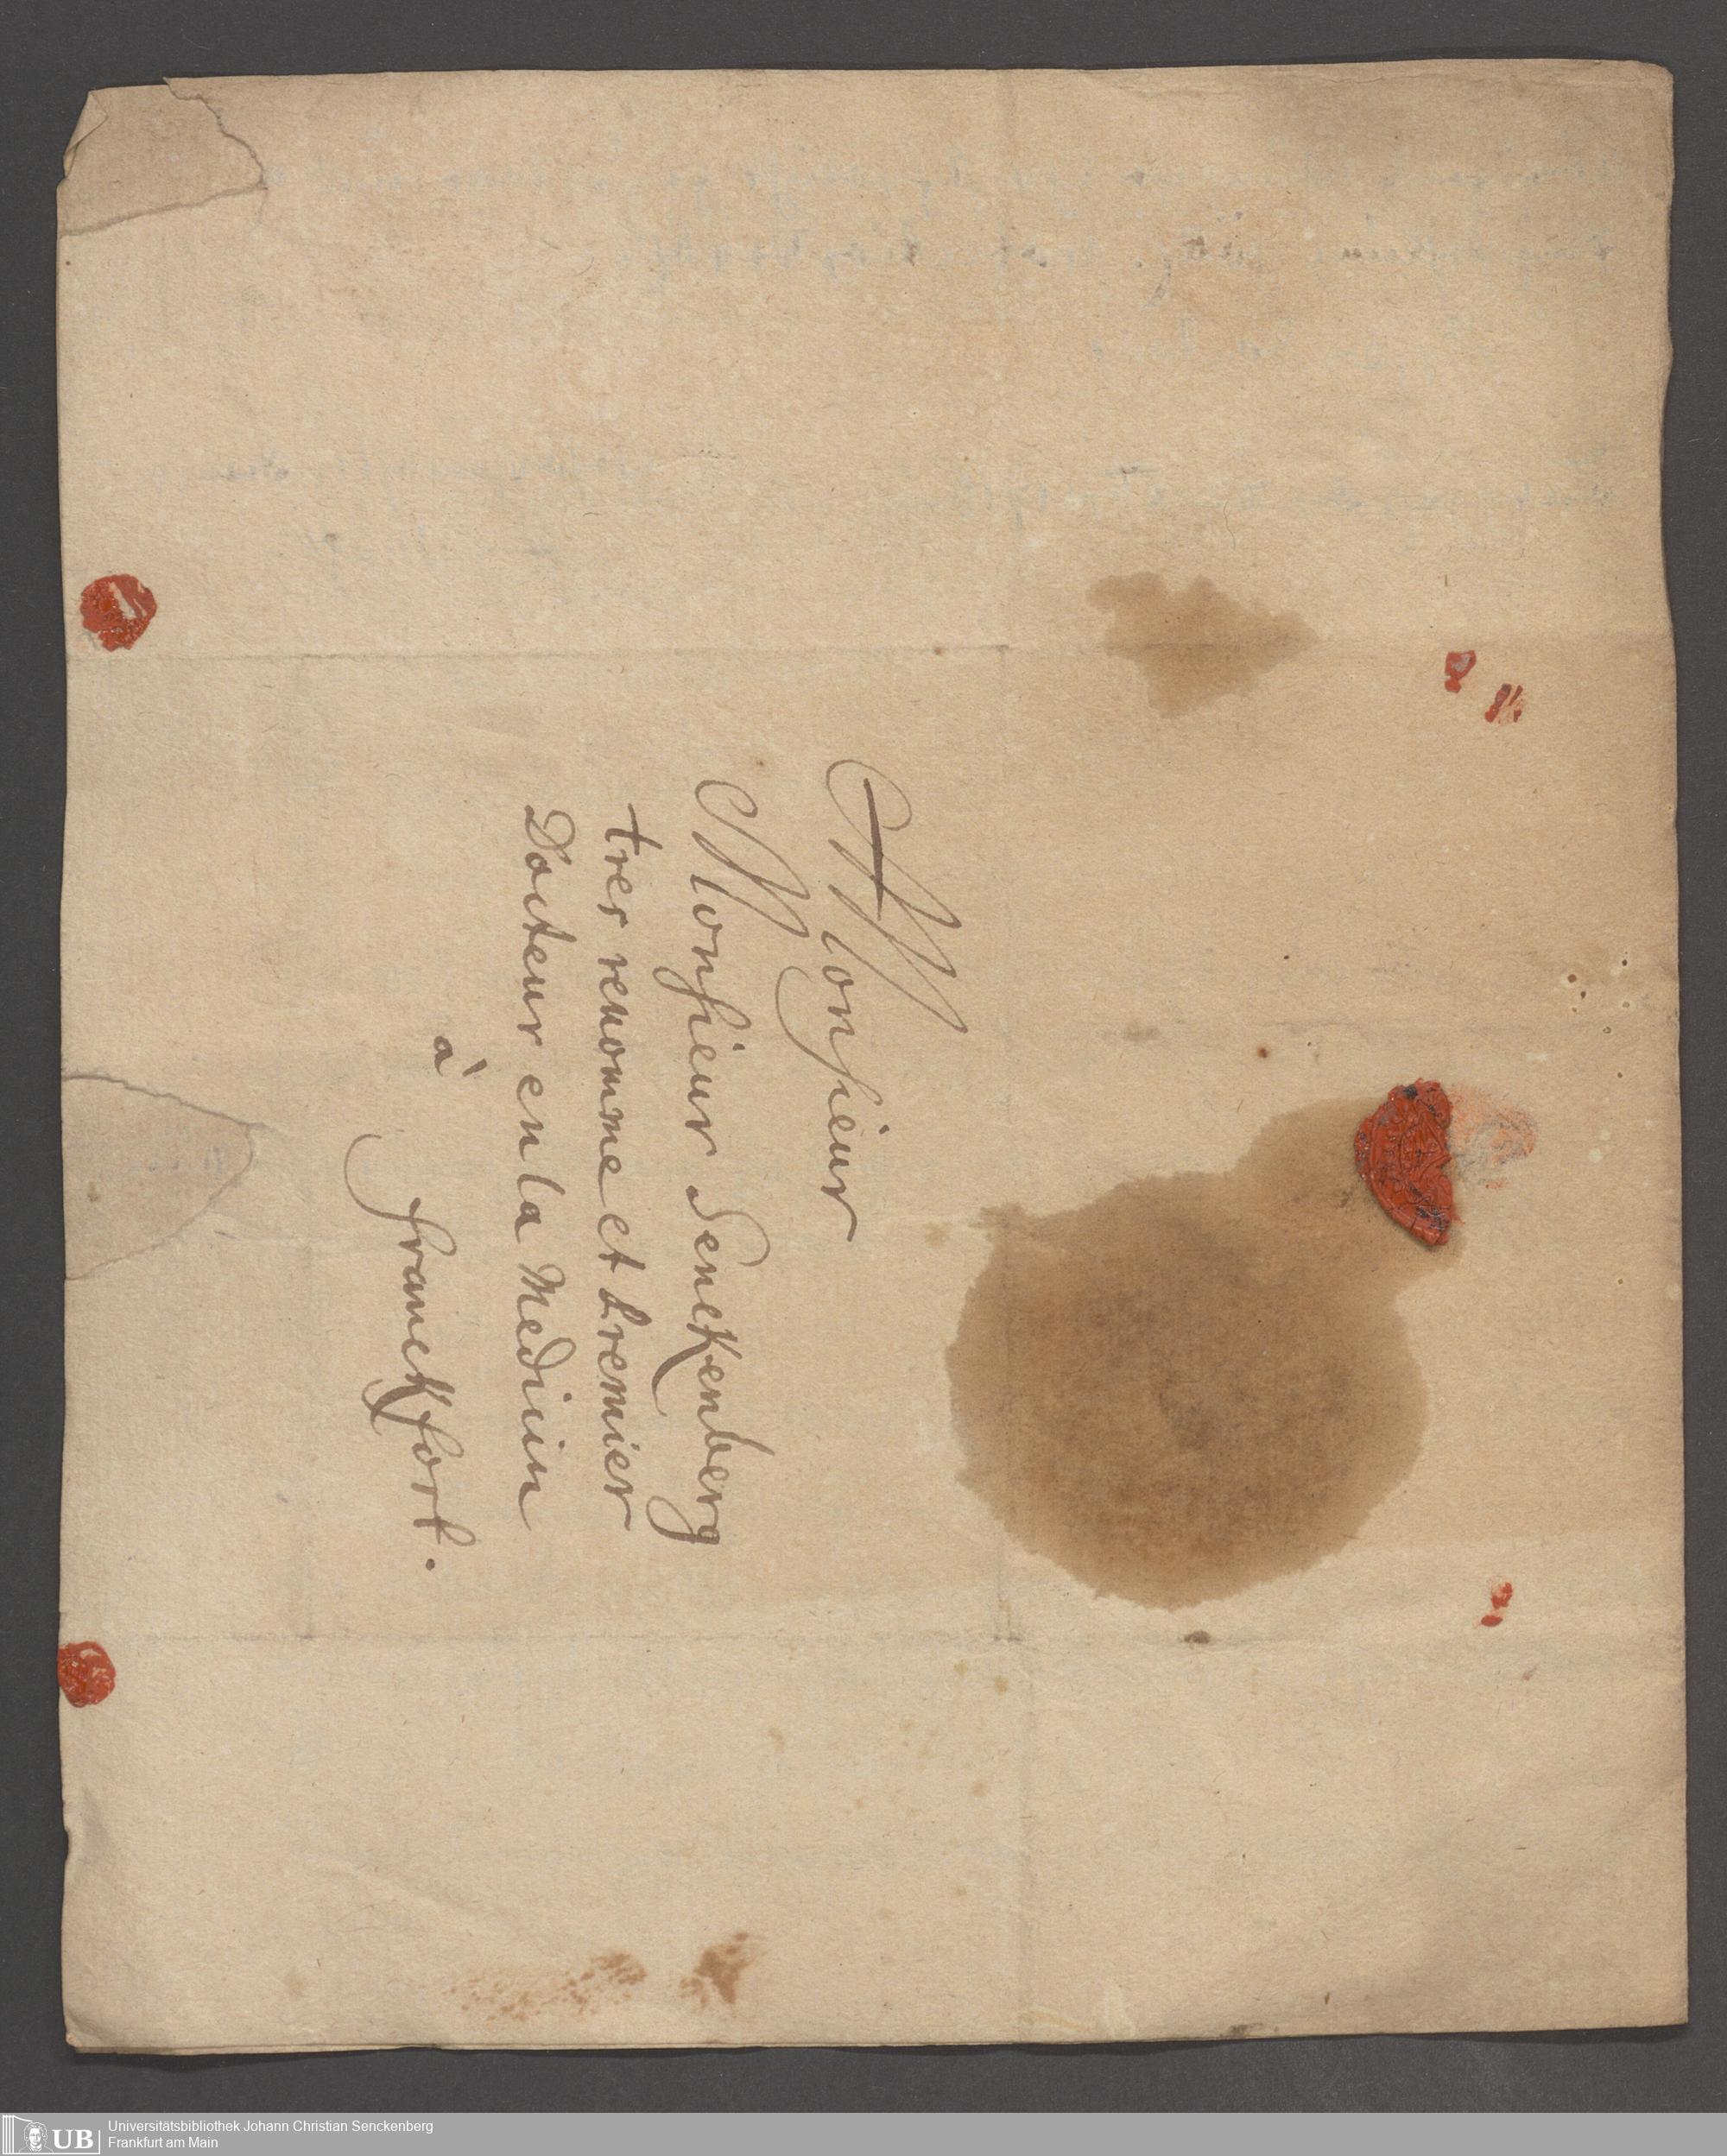 Monsieur
Monsieur Senckenberg
tres renomme et premier
Docteur en la Medicin
à
franckfort.
UB
Universitätsbibliothek Johann Christian Senckenberg
Frankfurt am Main